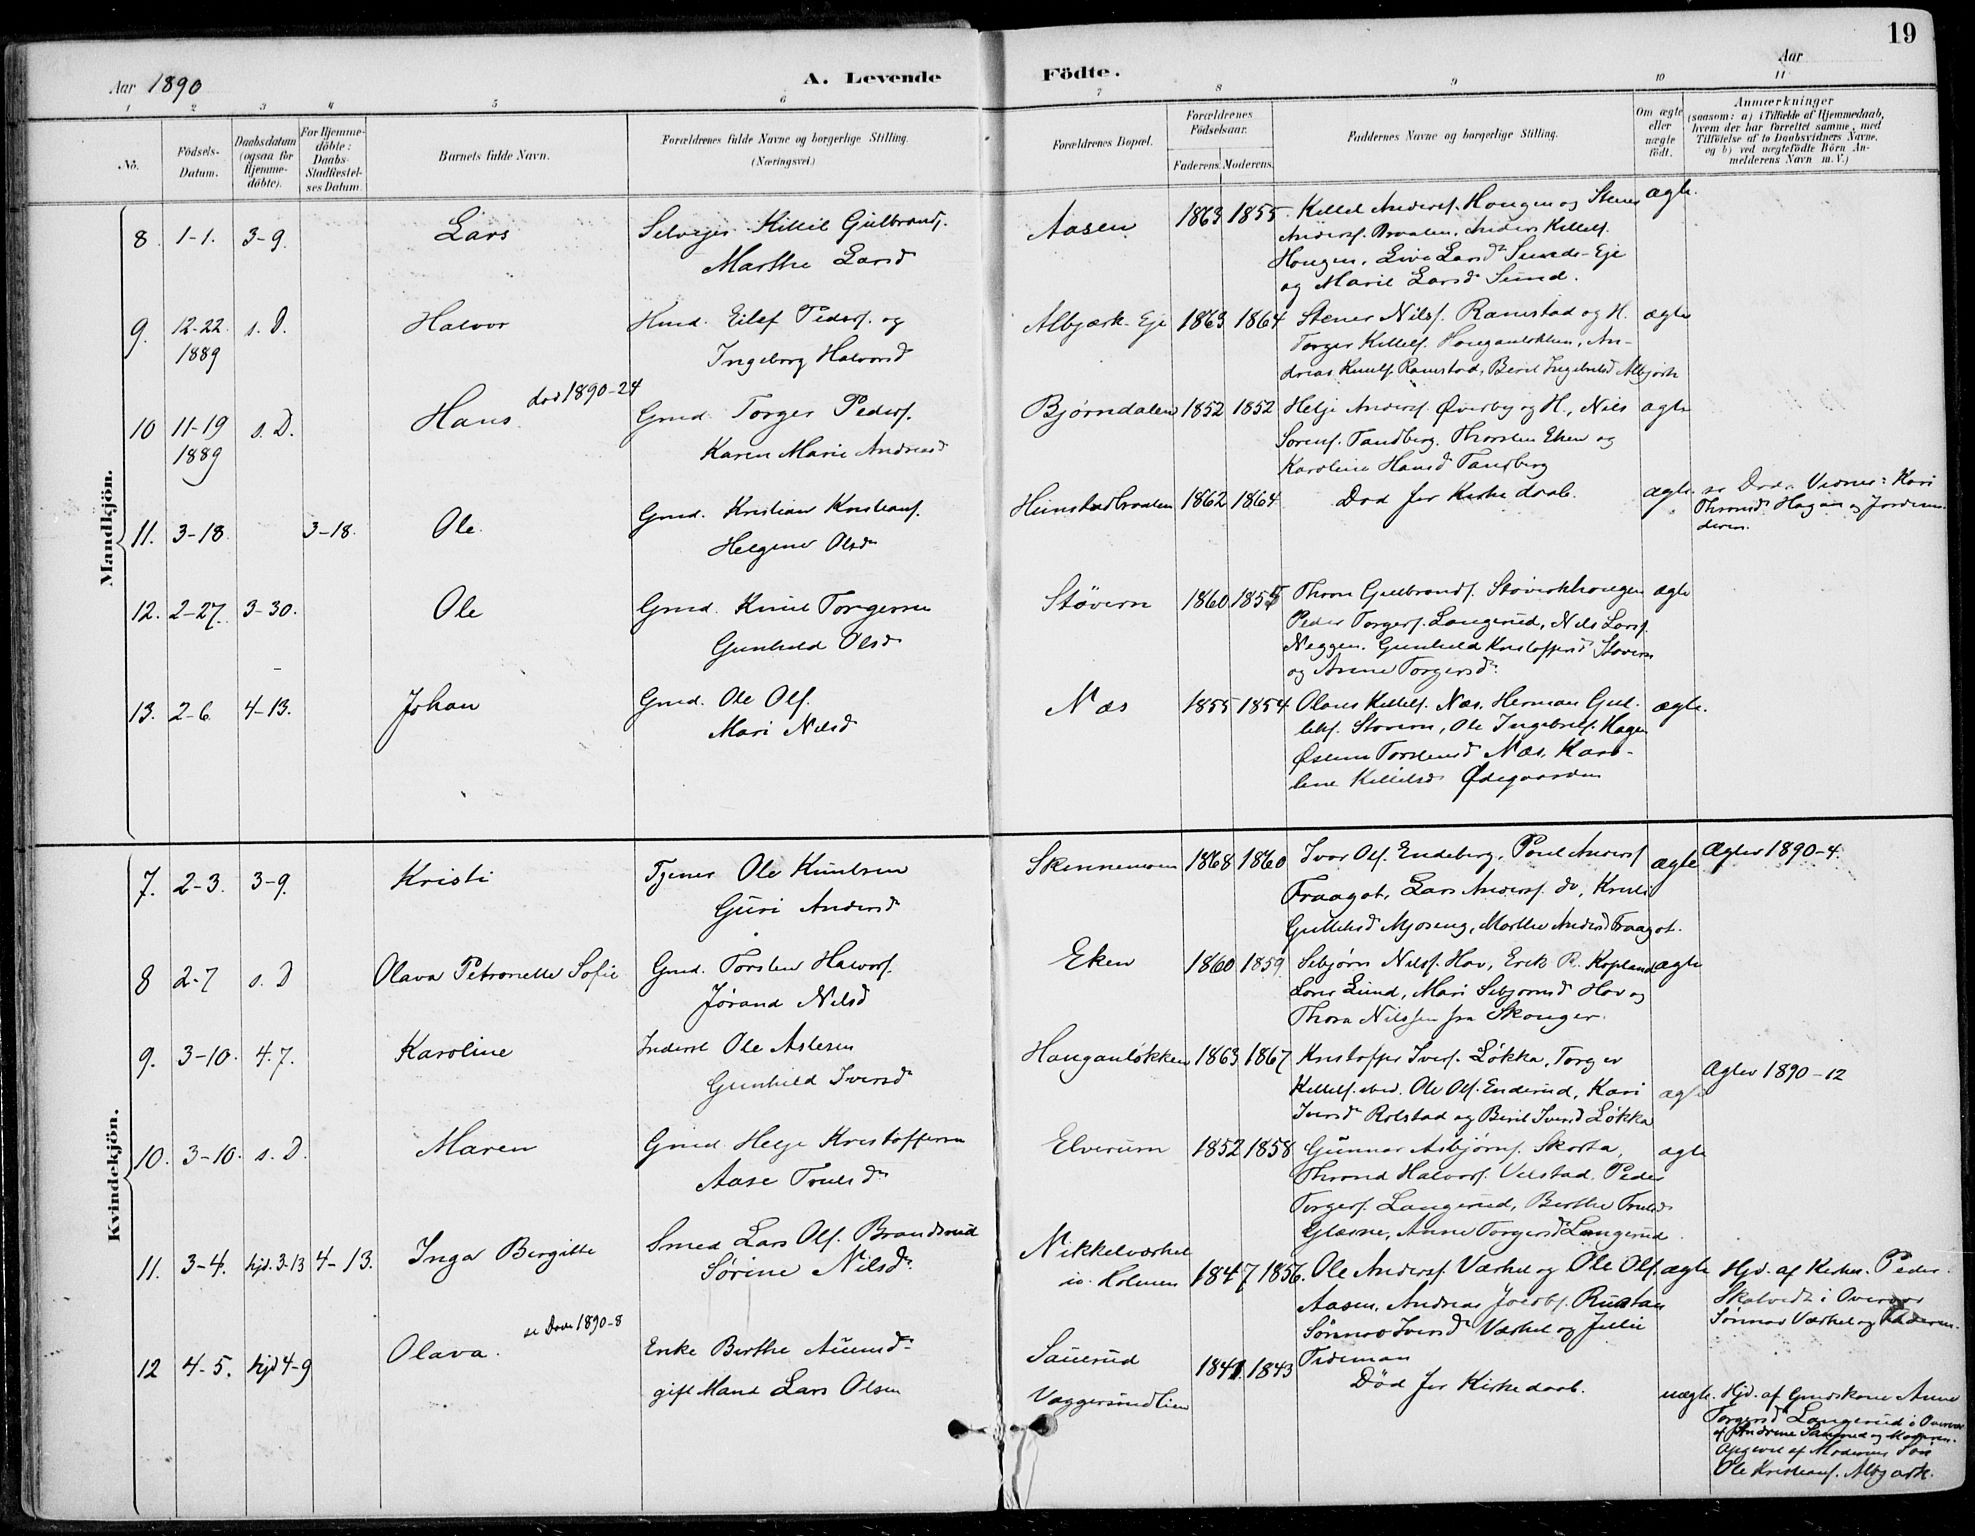 19
Aar 1890
A. Levende Födte.
Aar
1 2 3 4 5 6 7 8 9 10 11
No.
Födsels-Datum.
Daabsdatum (ogsaa for Hjemme-döbte).
For Hjemme-döbte: Daabs-Stadfæstel-ses Datum.
Barnets fulde Navn.
Forældrenes fulde Navne og borgerlige Stilling. (Næringsvei.)
Forældrenes Bopæl.
Forældrenes Födselsaar.
Faderens. Moderens.
Faddernes Navne og borgerlige Stilling.
Om ægte eller uægte født.
Anmærkninger
(saasom: a) i Tilfælde af Hjemmedaab, hvem der har forrettet samme, med Tilföielse af to Daabsvidners Navne, og b) ved uægtefödte Börn An-melderens Navn m. V.)
Mandkjön.
8. 1-1. 3-9. Lars
Selveier Killil Gulbrands.
Marthe Larsd
Aasen 1863 1855
Killil Anders. Hougen og Stener
Anders. Braaten, Anders Killils.
Hougen, Live Larsd Sunde-Eje
og Marie Larsd Sund.
ægte.
9. 12-22 1889 s. D. Halvor
Hmd. Eilef Peders. og
Ingeborg Halvorsd
Albjærk-Eje 1863 1864
Stener Nils. Ramstad og H.
Torger Killils. Houganløkken, An-
dreas Knuts. Ramstad, Berit Ingebrilsd Albjerk
ægte
10 11-19 1889 s. D. Hans død 1890-24
Gmd. Torger Peders.
Karen Marie Andreasd
Bjørndalen 1852 1852
Helje Anders. Øverby og H., Nils
Sørens. Tandberg, Thorsten Eken og
Karoline Hansd Tandberg
ægte
11. 3-18. 3-18. Ole.
Gmd. Kristian Kristians.
Helgine Olsd
Heimstadbraaten 1862 1864
Død før Kirkedaab.
ægte. se Døde. Vidner: Kari
Thronsd Hagen og Jordemo-
deren.
12. 2-27. 3-30. Ole
Gmd. Knut Torgersen
Gunhild Olsd
Støvern 1860 1855
Thron Gulbrands. Støvernhougen
Peder Torgers. Langerud, Nils Lars.
Neggen. Gunhild Kristoffersd Støvern
og Anne Torgersd
ægte
13. 2-6. 4-13. Johan
Gmd. Ole Ols.
Mari Nilsd
Næs 1855 1854
Olaus Killils. Næs, Herman Gul-
liks. Støvern, Ole Ingebrils. Hagen
Østine Torstensd Næs, Karo-
line Killilsd Ødegaarden
ægte.
Kvindekjön.
7. 2-3. 3-9. Kristi
Tjener Ole Knutsen
Guri Andersd
Skinnemoen 1868 1860
Ivar Ols. Endeberg, Poul Anders.
Fraagot, Lars Anders. do, Kristi
Gulliksd Mjøseng, Marthe Andersd Fraagot.
ægte Ægtev 1890-4.
8 2-7 s. D Olava Petronelle Sofie
Gmd. Torsten Halvors.
Jørand Nilsd
Eken 1860 1859
Sebjørn Nils. Hov, Erik R. Kopland
Lund, Mari Sebjørnsd Hov og
Thora Nilssen fra Skouger.
ægte
9. 3-10. 4.7. Karoline
Inderst Ole Aslesen
Gunhild Iversd
Houganløkken 1863 1867
Kristoffer Ivers. Løkka, Torger
Killils. ibid. Ole Ols. Enderud, Kari
Iversd Rolstad og Berit Iversd Løkka
ægte Ægtev 1890-12
10. 3-10. s. D. Maren
Gmd. Helje Kristoffersen
Aase Trulsd
Elverum 1852 1858
Gunnar Asbjørns. Skarta,
Thrond Halvors. Velstad, Peder
Torgers. Langerud, Berthe Trulsd
Glærne, Anne Torgersd Langerud.
ægte
11. 3-4. hjd. 3-13 4-13. Inga Birgitte
Smed Lars Ols. Brandsrud
Sørine Nilsd
Nikkelværket
Holmen 1847 1856.
Ole Anders. Værket og Ole Ols.
Aasen, Andreas Rustan
Sønnov Iversd Værket og Julie
Tideman
ægte Hjd. af Kirkes. Peder
Skalvedt i Overvær
Sønnov Værket og Faderen.
12 4-5. hjd 4-9 Olava. se Døde 1890-8
Enke Berthe Amundsd
gift Mand Lars Olsen
Sauerud
Væggersrudlien
1841. 1843
Død før Kirkedaab.
uægte. Hjd. af Gmdskone Anne
Torgersd Langerud i Overvær
af Andrine Sauerud og Moderen.
Opgivet af Moderens Søn
Ole Kristians. Albjærk.